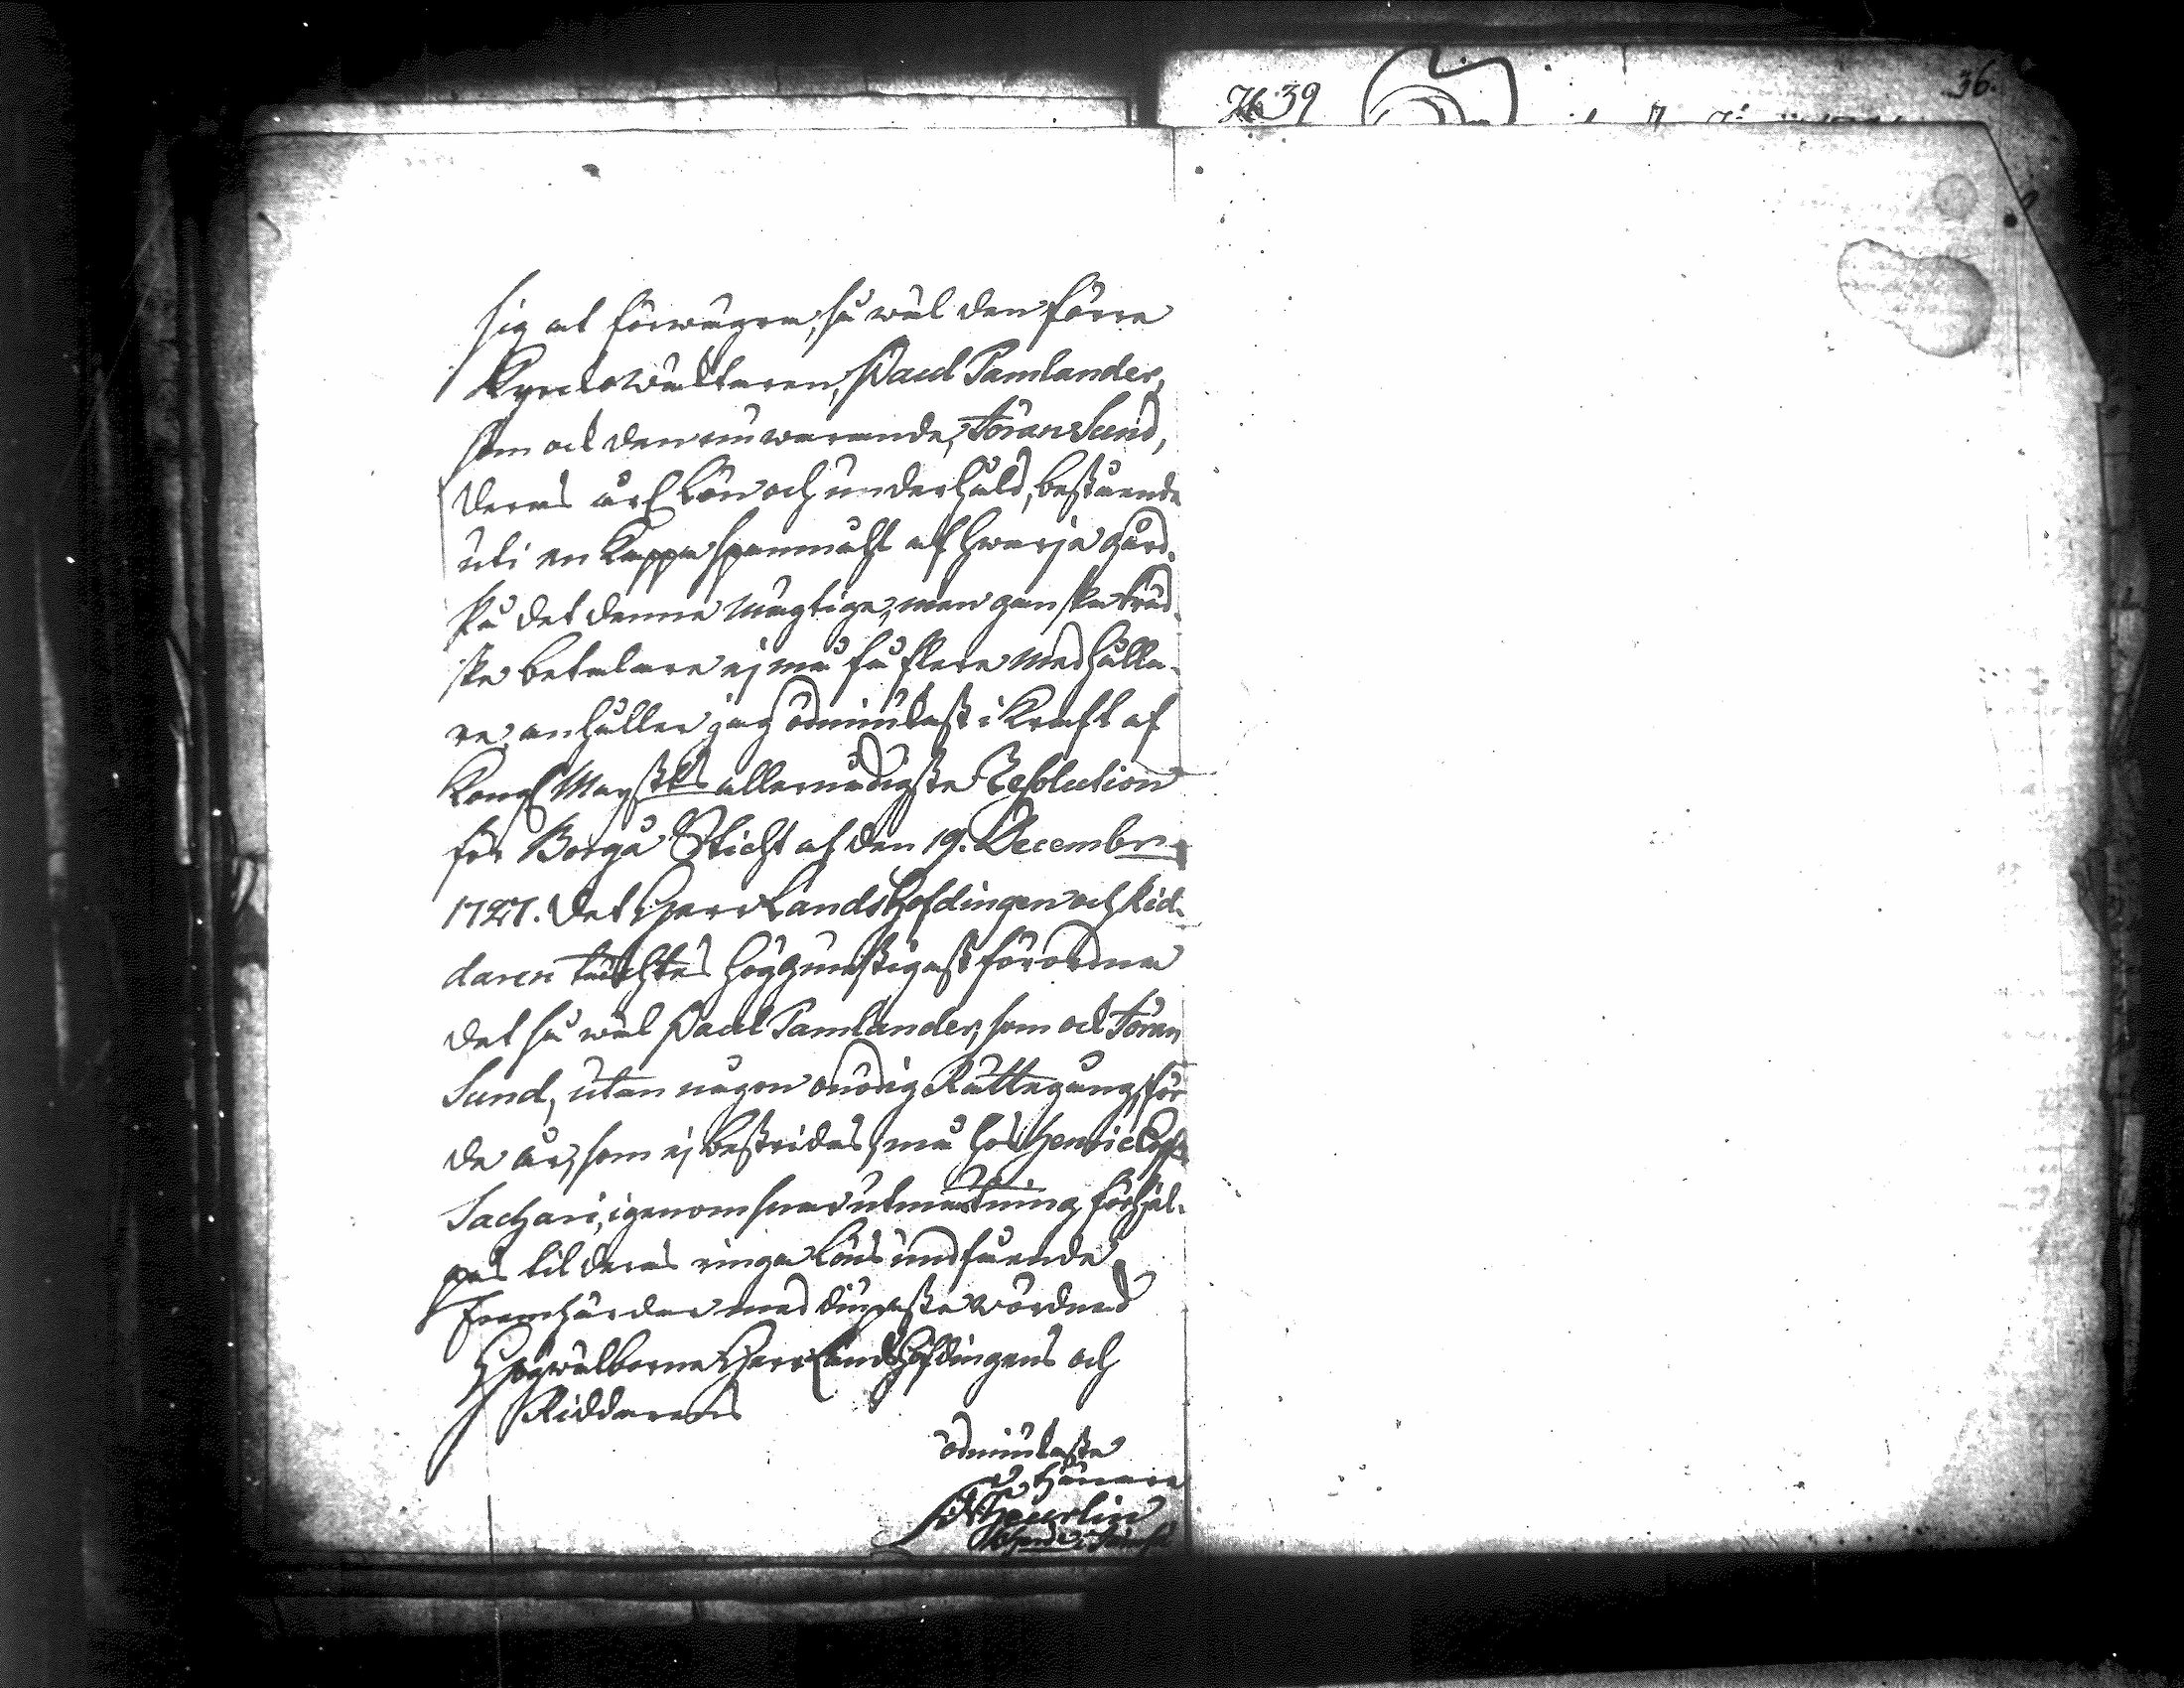 N: 39
36.
sig at förwägra, så wäl den förre
Kyrckowächtaren, Paul Tamlander,
som ock den nu warande, Jöran Sund,
deras årl. lön och underhåld, bestående
uti en kappe spanmåhl af hwarje gård.
På det denne mägtige, men ganska träd-
ske betalare ej må få flere medhålla-
re, anhåller jag ödmiukast i kraft af
Kongl Maystts allernådigste Resolution
för Borgå Sticht af den 19. Decembr
1727. det Herr Landshöfdingen och Rid-
daren täcktes höggunstigast förordna
det så wäl Paul Tamlander, som ock Jöran
Sund, utan någon onödig Rättegång, för
de år, som ej bestridas, må hos Henric
Sachari, igenom snar utmätning förhiäl-
pas til deras ringa löns undfående
framhärdar med diupaste wördnad
Högwälborne Herr Landshöfdingens och
Riddarens
ödmiukaste
tiänare
Heurlin